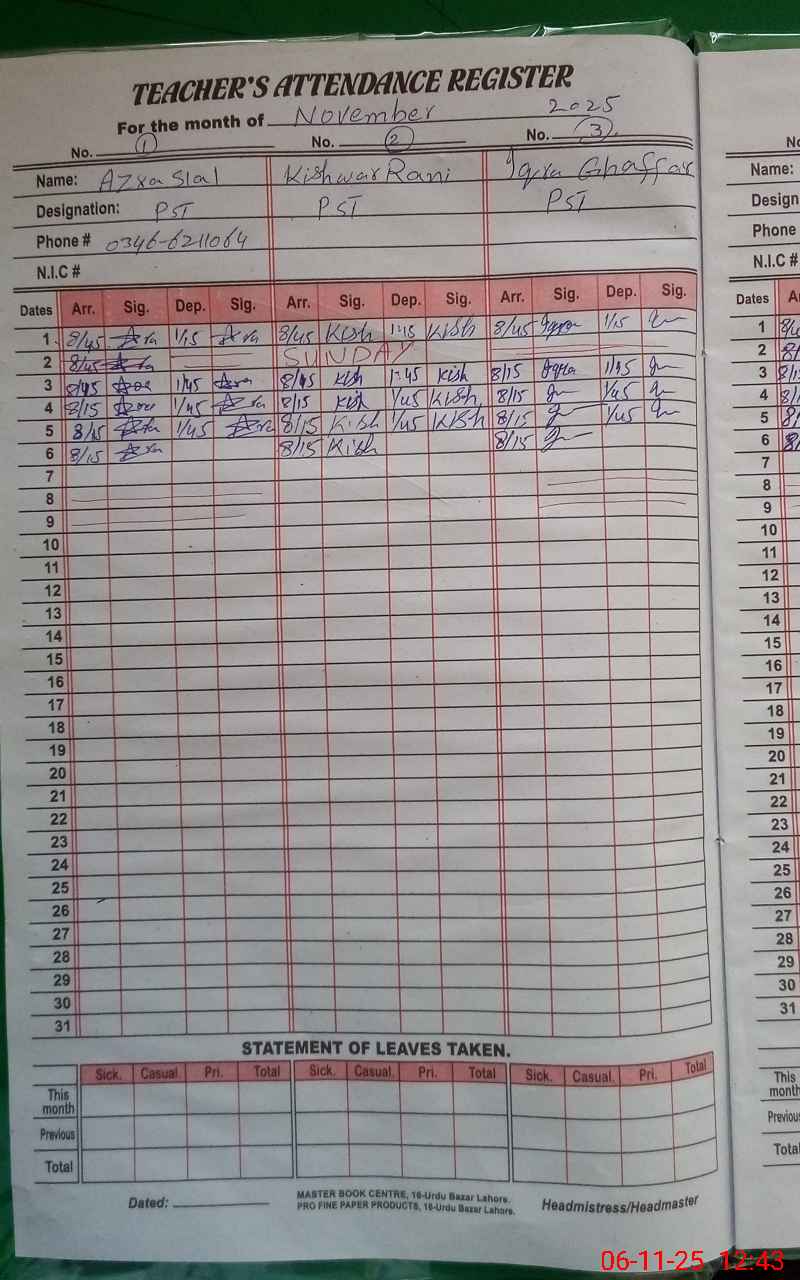 TEACHER'S ATTENDANCE REGISTER
For the month of November 2025
No. 1 No. 2 No. 3
Name: Azra Sial Kishwar Rani Iqra Ghaffar
Designation: PST PST PST
Phone # 0346-6211064
N.I.C #
Dates Arr. Sig. Dep. Sig. Arr. Sig. Dep. Sig. Arr. Sig. Dep. Sig.
1 8/45 1/15 8/45 Kish 1:15 Kish 8/45 Iqra 1/15
2 8/45 SUNDAY
3 8/45 1/45 8/45 Kish 1:45 Kish 8/15 Iqra 1/45
4 8/15 1/45 8/15 Kish 1/45 Kish 8/15 1/45
5 8/15 1/45 8/15 Kish 1/45 Kish 8/15 1/45
6 8/15 8/15 Kish 8/15
7
8
9
10
11
12
13
14
15
16
17
18
19
20
21
22
23
24
25
26
27
28
29
30
31
STATEMENT OF LEAVES TAKEN.
Sick. Casual. Pri. Total Sick. Casual. Pri. Total Sick. Casual. Pri. Total
This month
Previous
Total
Dated:
MASTER BOOK CENTRE, 16-Urdu Bazar Lahors.
PRO FINE PAPER PRODUCTS, 16-Urdu Bazar Lahors.
Headmistress/Headmaster
Name:
Design
Phone
N.I.C #
Dates
1
2
3
4
5
6
7
8
9
10
11
12
13
14
15
16
17
18
19
20
21
22
23
24
25
26
27
28
29
30
31
This
month
Previous
Total
06-11-25 12:43